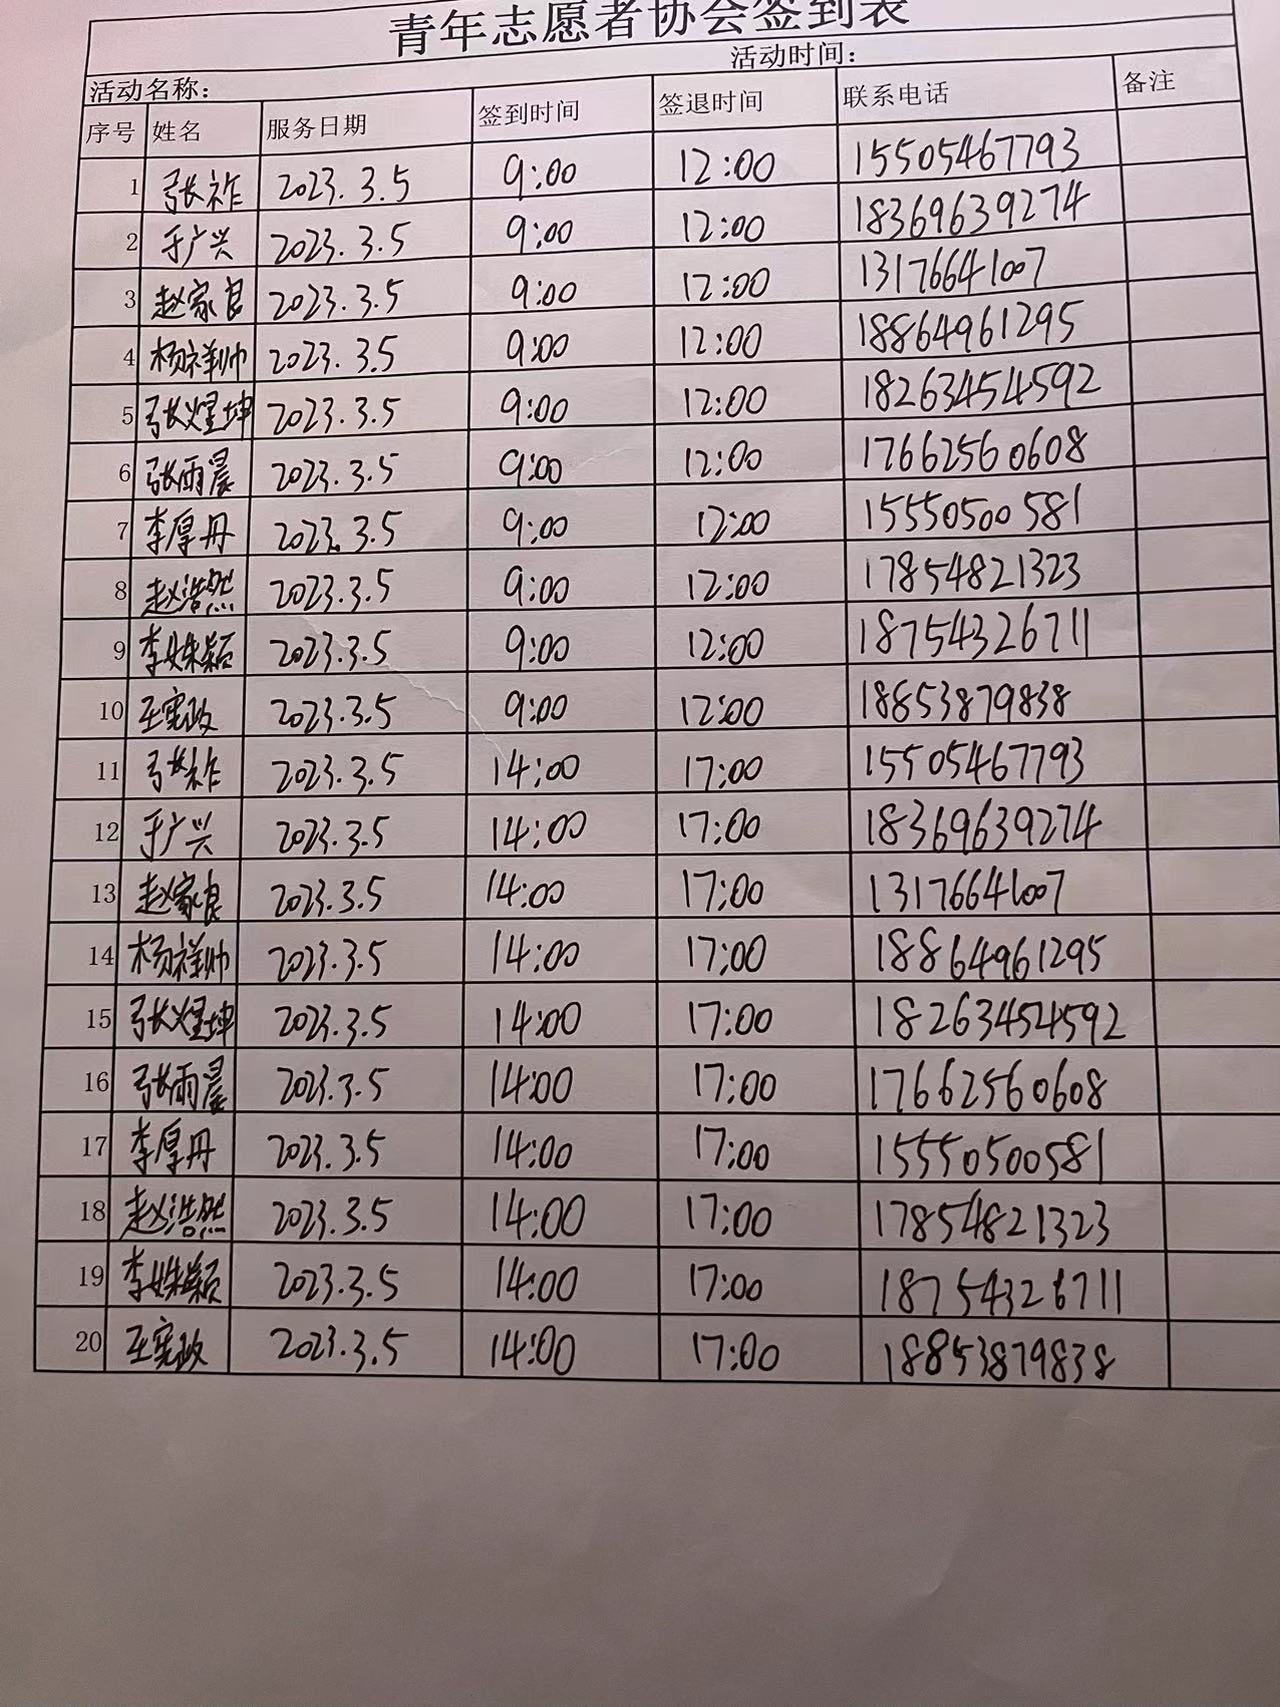 青年志愿者协会签到表
活动名称： 活动时间：
序号 姓名 服务日期 签到时间 签退时间 联系电话 备注
1 张祚 2023.3.5 9:00 12:00 15505467793
2 于广兴 2023.3.5 9:00 12:00 18369639274
3 赵家良 2023.3.5 9:00 12:00 13176641007
4 杨祥帅 2023.3.5 9:00 12:00 18864961295
5 张煜坤 2023.3.5 9:00 12:00 18263454592
6 张雨晨 2023.3.5 9:00 12:00 17662560608
7 李厚丹 2023.3.5 9:00 12:00 15550500581
8 赵浩然 2023.3.5 9:00 12:00 17854821323
9 李姝颖 2023.3.5 9:00 12:00 18754326711
10 王宪政 2023.3.5 9:00 12:00 18853879838
11 张祚 2023.3.5 14:00 17:00 15505467793
12 于广兴 2023.3.5 14:00 17:00 18369639274
13 赵家良 2023.3.5 14:00 17:00 13176641007
14 杨祥帅 2023.3.5 14:00 17:00 18864961295
15 张煜坤 2023.3.5 14:00 17:00 18263454592
16 张雨晨 2023.3.5 14:00 17:00 17662560608
17 李厚丹 2023.3.5 14:00 17:00 15550500581
18 赵浩然 2023.3.5 14:00 17:00 17854821323
19 李姝颖 2023.3.5 14:00 17:00 18754326711
20 王宪政 2023.3.5 14:00 17:00 18853879838